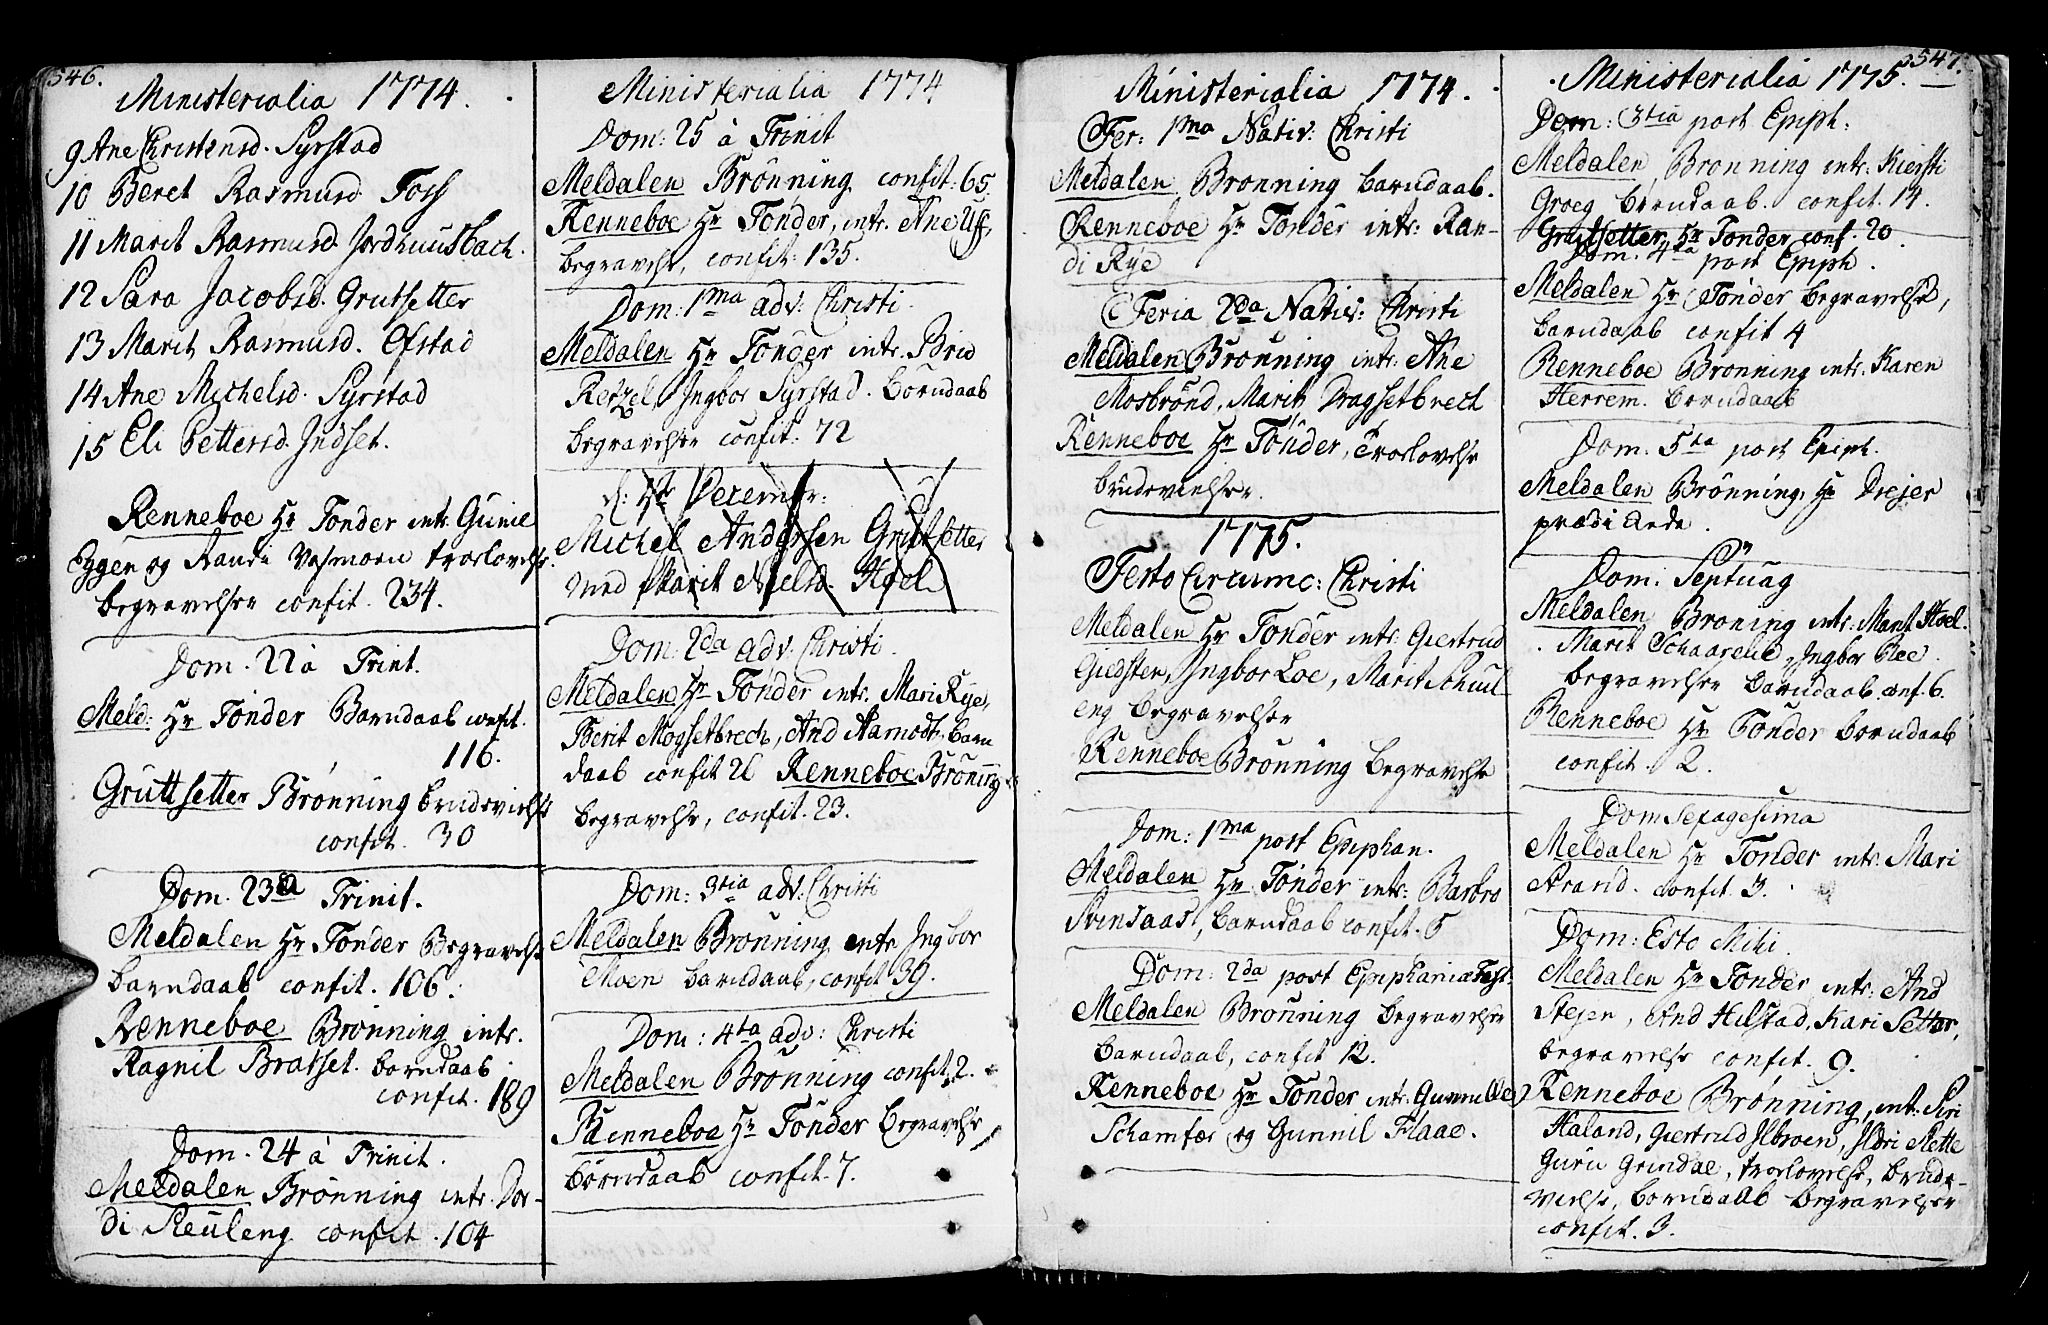 546.
Ministerialia 1774.
9 Ane Christensd. Syrstad
10 Beret Rasmusd Foss
11 Marit Rasmusd. Jordhuusbach.
12 Sara Jacobsd. Grutsetter
13 Marit Rasmusd. Efstad
14 Ane Michelsd. Syrstad
15 Eli Pettersd. Indset.
Renneboe Hr Tonder intr. Gunil
Eggen og Randi Vasmoen trolovelse
begravelser confit. 234.
Dom. 22 à Trint.
Meld: Hr Tonder Barndaab confit.
116.
Gruttsetter Brønning brudevielse
confit. 30
Dom. 23 à Trinit.
Meldalen Hr Tonder Begravelse
barndaab confit. 106.
Renneboe Brønning intr.
Ragnil Bratset. barndaab
confit. 189
Dom. 24 à Trinit.
Meldalen Brønning intr. Dor-
di Skeuleng confit. 104
Ministerialia 1774
Dom: 25 à Trinit
Meldalen Brønning confit. 65.
Renneboe Hr Tonder, intr. Ane Uff,
begravelse, confit: 135.
Dom: 1ma adv: Christi
Meldalen Hr Tonder intr. Brid
Retzel, Ingbor Syrstad. børndaab
begravelser confit: 72
d: 4de Decembr:
Michel Anderssen Grutsetter
med Marit Nielsd. Hoel
Dom: 2da adv: Christi.
Meldalen Hr Tonder intr. Mari Rye,
Berit Mogsetbrech, And Aamodt. barn
daab confit 21 Renneboe Brønning
begravelse, confit. 23.
Dom: 3tia adv: Christi
Meldalen Brønning intr Ingbor
Moen barndaab, confit 39.
Dom: 4ta adv: Christi
Meldalen Brønning confit. 2.
Renneboe Hr Tonder Begravelse
børndaab confit. 7.
Ministerialia 1774.
Fer: 1ma Nativ: Christi
Meldalen Brønning barndaab.
Renneboe Hr Tonder intr: Ran-
di Rye
Feria 2da Nativ: Christi
Meldalen Brønning intr: Ane
Mosbrønd, Marit Dragsetbrech
Renneboe Hr Tonder, trolovelse
brudevielser.
1775.
Festo Circumc: Christi
Meldalen Hr Tonder intr Giertrud
Giedsten, Ingbor Loe, Marit Schiul-
eng begravelser
Renneboe Brønning begravelse
Dom: 1ma post Epiphan.
Meldalen Hr Tonder intr: Barbro
Svinsaas, barndaab confit. 5
Dom: 2da post Epiphania Fest.
Meldalen Brønning begravelser
barndaab, confit 12.
Renneboe Hr Tonder intr: Gunnild
Schamfær og Gunnil Flaae.
547.
Ministerialia 1775.
Dom: 3tia post Epiph:
Meldalen Brønning intr. Kiersti
Groeg børndaab. confit. 14.
Grutsetter Hr Tonder conf. 20
Dom. 4ta post Epiph.
Meldalen Hr Tonder begravelse,
barndaab confit 4
Renneboe Brønning intr. Karen
Herrem. børndaab
Dom. 5ta post Epiph.
Meldalen Brønning, Hr Drejer
prædikede.
Dom. Septuag
Meldalen Brøning intr: Marit Hoel.
Marit Schaarelie, Ingbr Ree.
begravelser barndaab. conf. 6.
Renneboe Hr Tonder børndaab
confit. 2.
Dom Sexagesima
Meldalen Hr Tonder intr. Mari
Strand. confit. 3.
Dom: Esto Mihi.
Meldalen Hr Tonder intr: And
Stejen, And Hilstad, Kari Setter,
begravelse confit. 9.
Renneboe Brønning, int: Siri
Haland, Giertrud Ilbroen, Ildri Slette
Guru Grindal, trolovelse, brude-
vielse, børndaab begravelser
confit. 3.